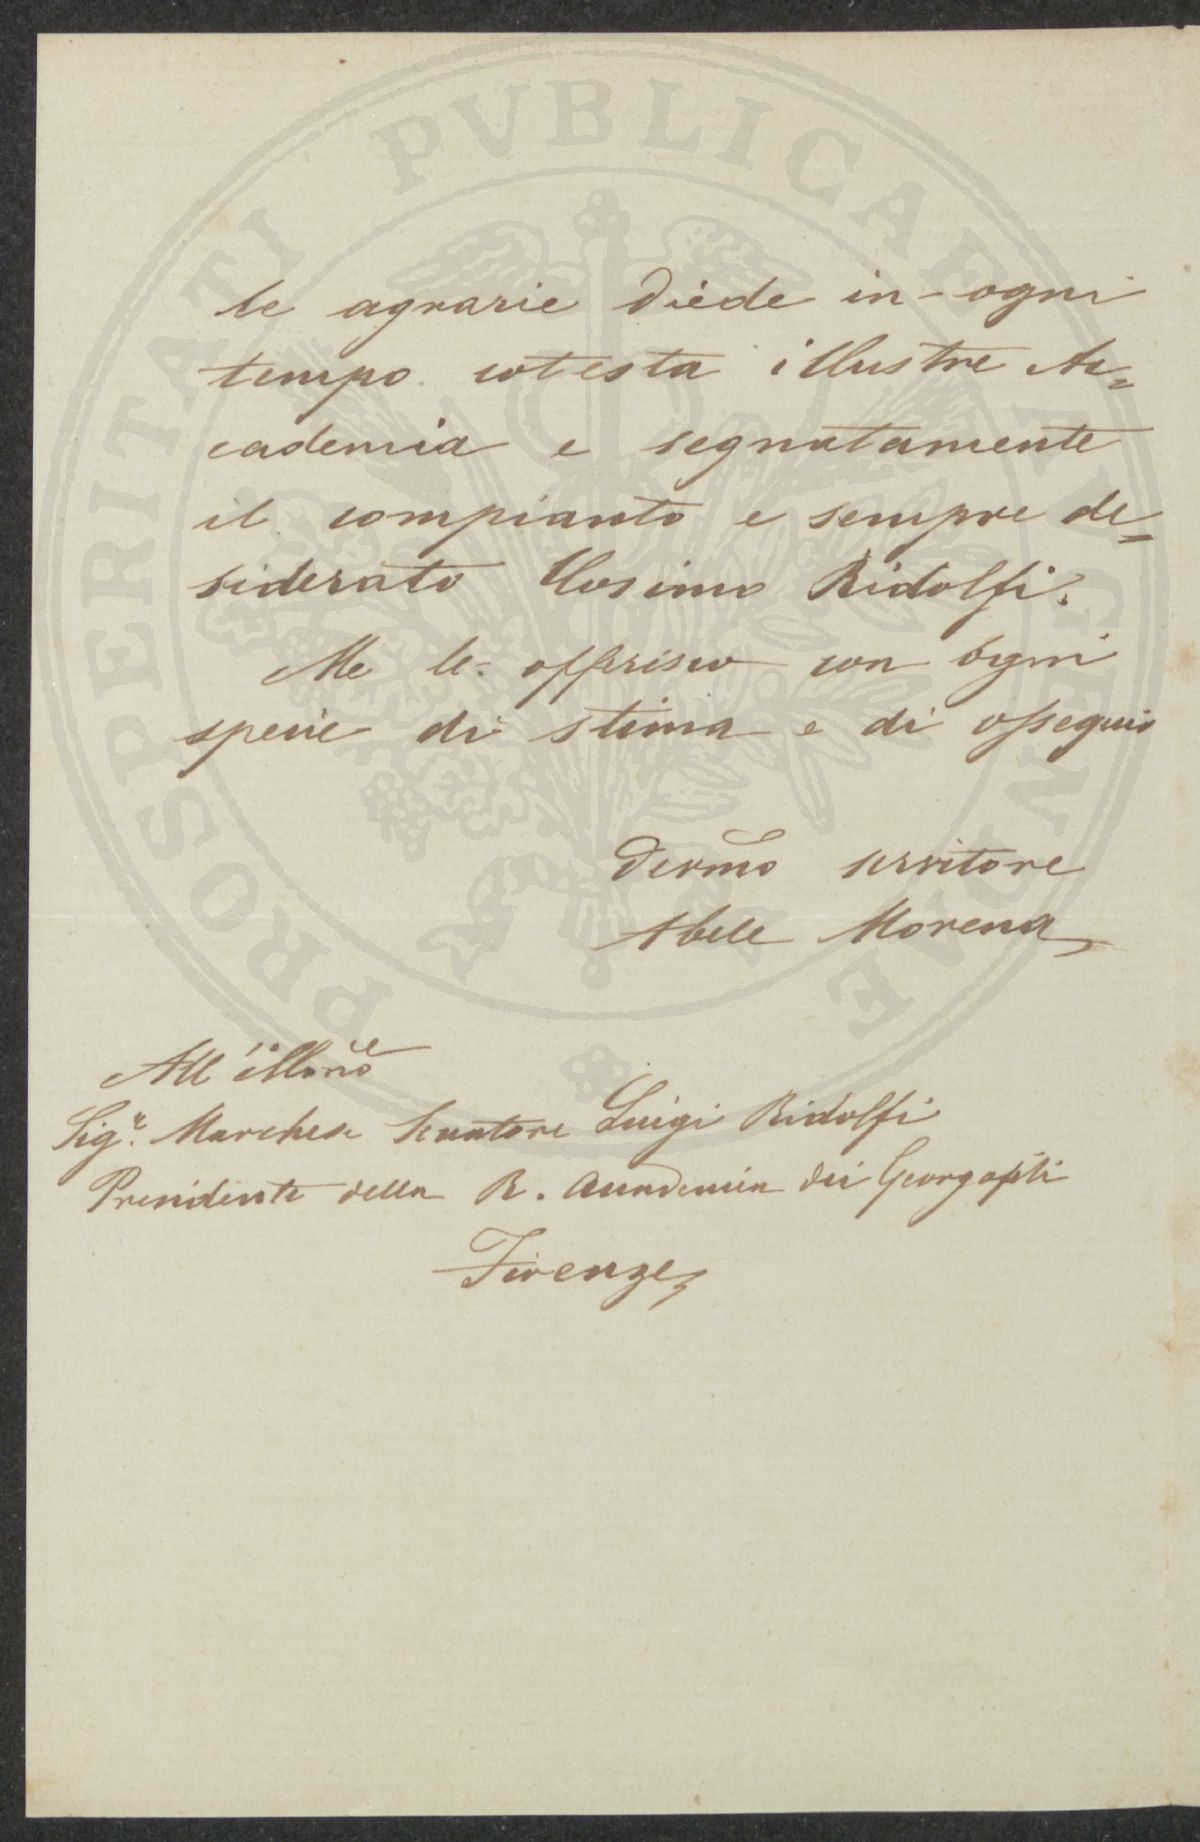 PROSPERITATI PVBLICAE AVGENDAE
le agrarie diede in ogni
tempo cotesta illustre Ac=
cademia e segnatamente
il compianto e sempre de=
siderato Cosimo Ridolfi.
Me le offerisco con ogni
specie di stima e di ossequio
Devmo servitore
Abele Morena
All'illmo
Sigr. Marchese Senatore Luigi Ridolfi
Presidente della R. Accademia dei Georgofili
Firenze